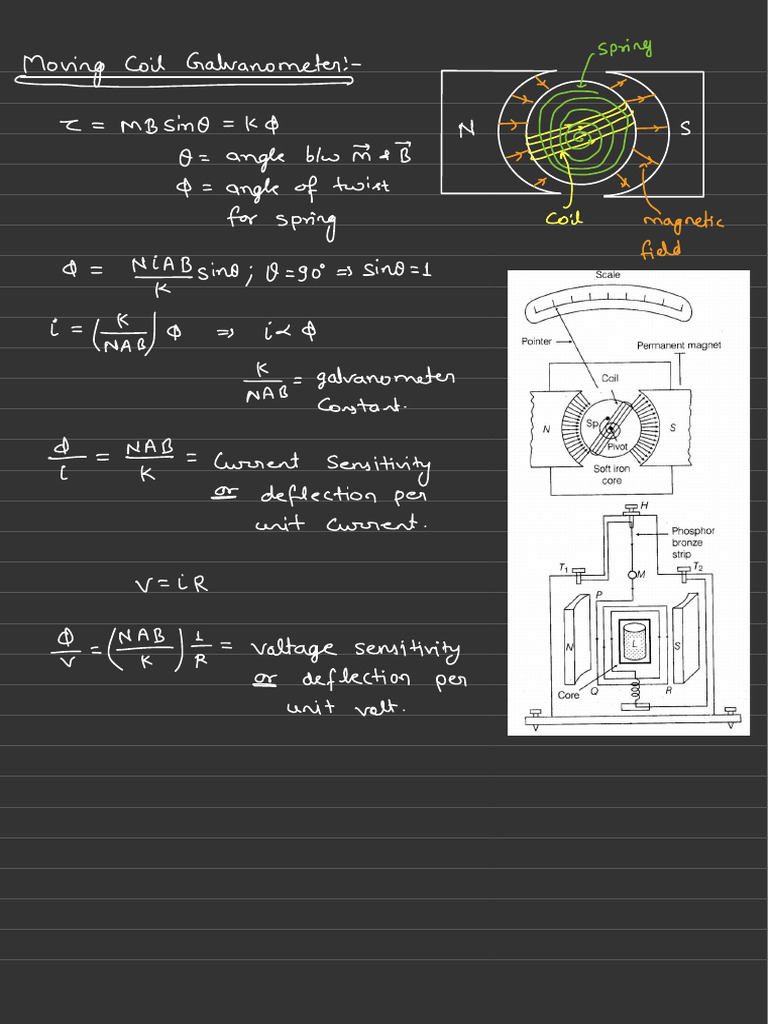 Moving Coil Galvanometer:-
τ = MB sinθ = Kϕ
θ = angle b/w M⃗ & B⃗
ϕ = angle of twist
for spring
ϕ = NiAB/K sinθ ; θ=90° ⇒ sinθ=1
i = (K/NAB) ϕ ⇒ i ∝ ϕ
K/NAB = galvanometer
Constant.
ϕ/i = NAB/K = Current sensitivity
or deflection per
unit current.
V = iR
ϕ/V = (NAB/K) 1/R = Voltage sensitivity
or deflection per
unit volt.
spring
N
S
coil
magnetic
field
Scale
Pointer
Permanent magnet
Coil
N
Sp
S
Pivot
Soft iron
core
H
Phosphor
bronze
strip
T1
T2
M
P
N
L
S
Core
Q
R
V
V